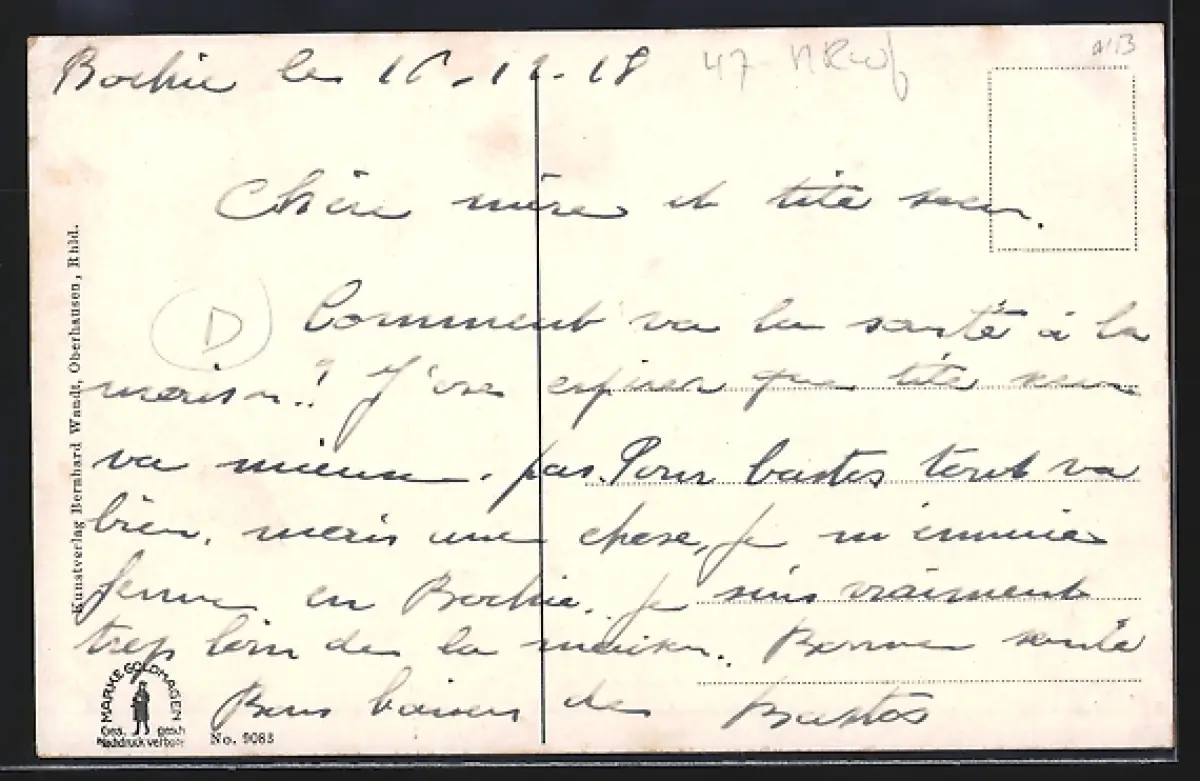 Bochie le 16-12-18
47 NRW
Chère mère et tite sœur.
D
Comment va la santé à la
maison! J'ose espérer que tite sœur
va mieux. pas. Pour bastos tout va
bien. mais une chose, je m'ennuie
ferme en Bochie. Je suis vraiment
trop loin de la maison. Bonne santé
Bons baisers de Bastos
Kunstverlag Bernhard Wandt, Oberhausen, Rhld.
MARKE GOLDMAGEN
Ges. gesch
Nachdruck verboten
No. 9083